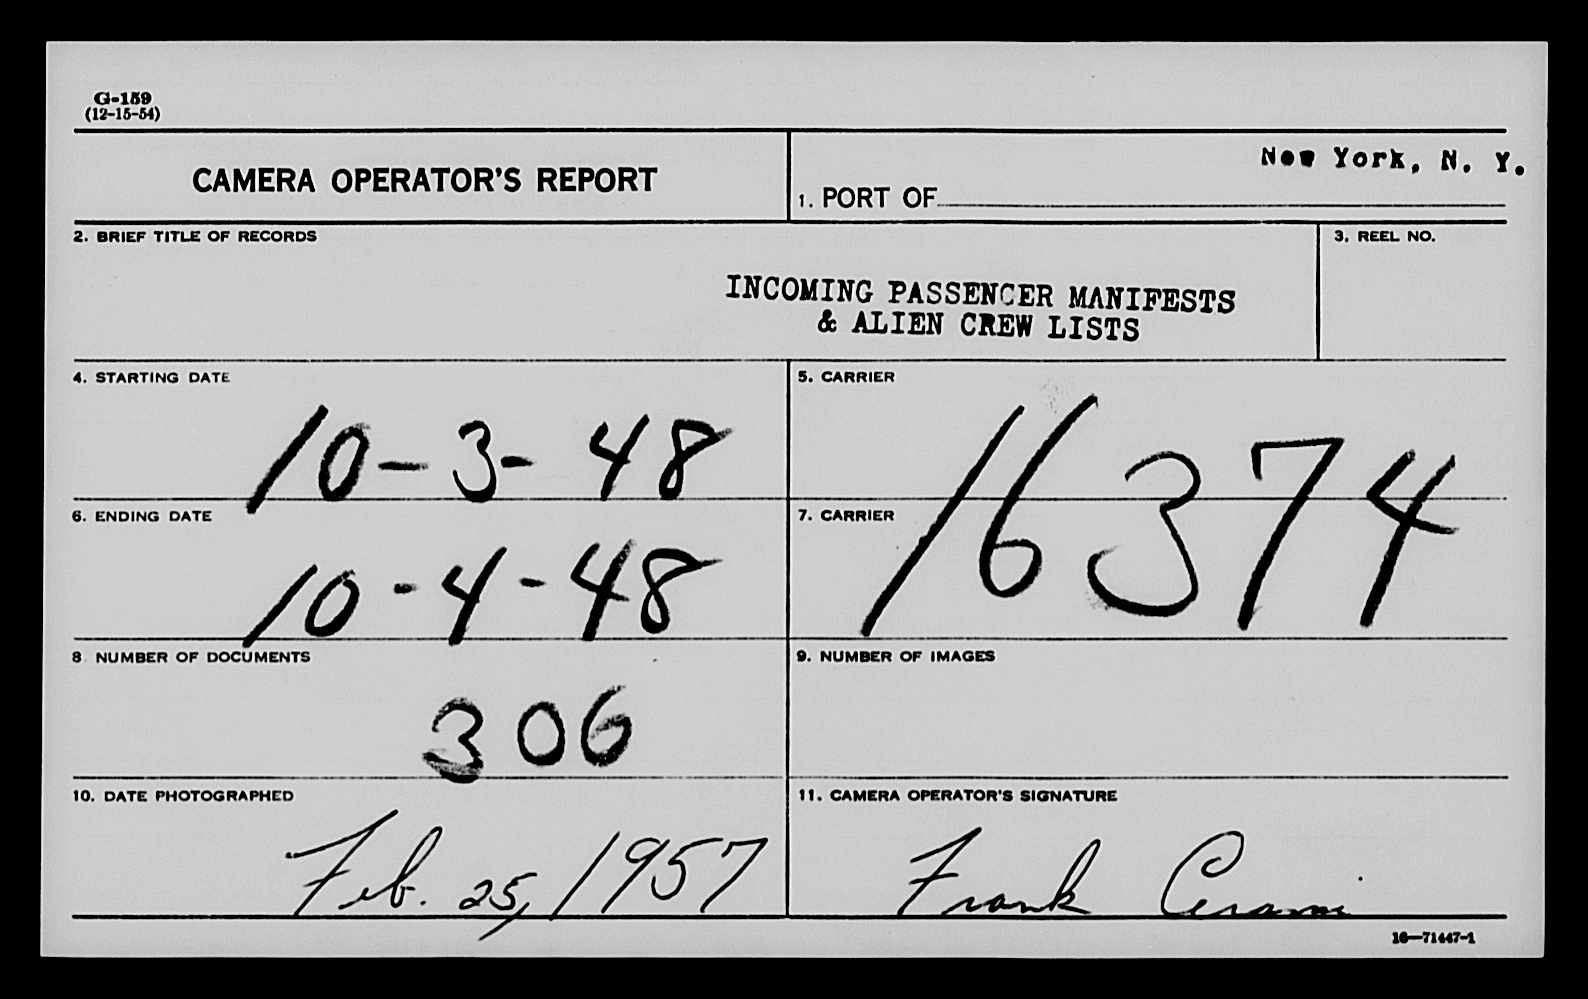 G-159
(12-15-54)
CAMERA OPERATOR'S REPORT
1. PORT OF New York, N. Y.
2. BRIEF TITLE OF RECORDS
INCOMING PASSENGER MANIFESTS
& ALIEN CREW LISTS
3. REEL NO.
4. STARTING DATE
10-3-48
5. CARRIER
16374
6. ENDING DATE
10-4-48
7. CARRIER
8. NUMBER OF DOCUMENTS
306
9. NUMBER OF IMAGES
10. DATE PHOTOGRAPHED
Feb. 25, 1957
11. CAMERA OPERATOR'S SIGNATURE
Frank Cerami
16—71447-1